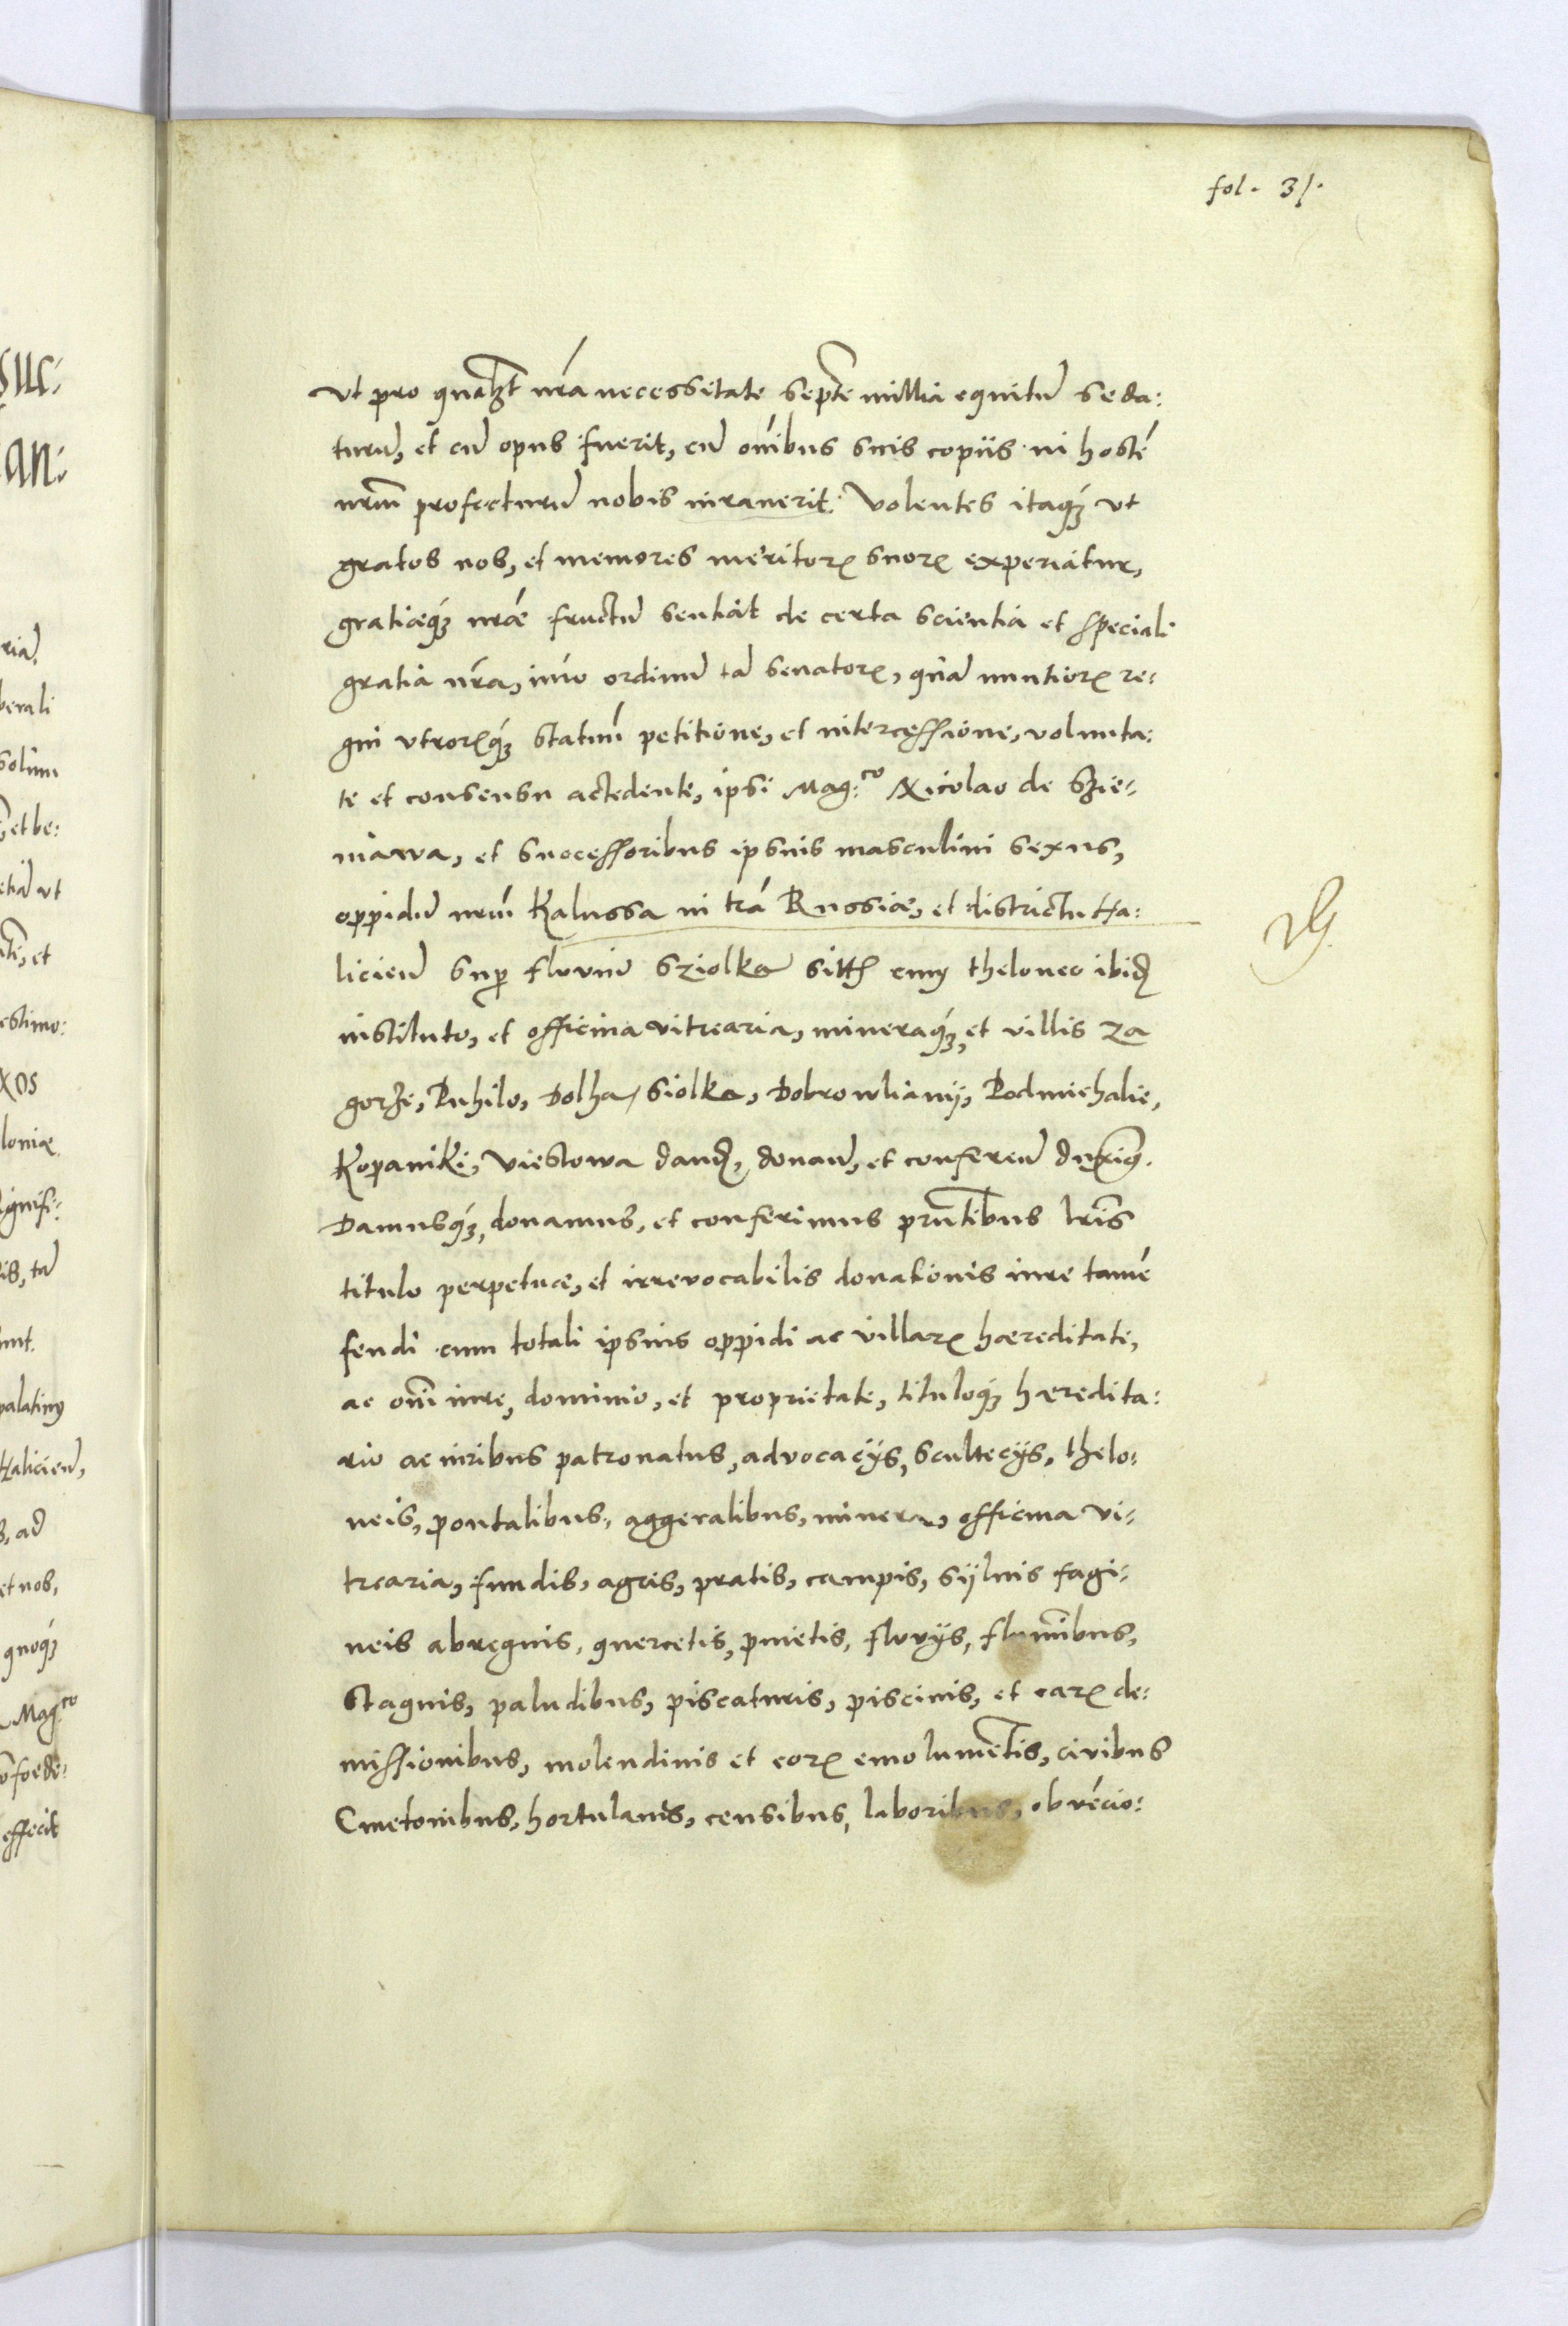 fol. 31.
Vt pro qualȝt nrã necessitate septe millia equitũ se da:
turũ, et cũ opus fuerit, cũ oĩbus suis copiis in hostẽ
nrũm profecturũ nobis iurauerit. Volentes itaqȝ vt
gratos nos, et memores meritorꝝ suorꝝ experiãtur,
gratiæqȝ nræ fructũ sentiãt de certa scientia et speciali
gratia nrã, imo ordinũ tã senatorꝝ, quã nuntiorꝝ re:
gni vtrorꝝqȝ statuũ petitione, et intercessione, volunta:
te et consensu accedente, ipsi Mag:co Nicolao de Szie:
niawa, et successoribus ipsius masculini sexus,
oppidũ nrũm Kalussa in trã Russiæ, et districtu Ha:
licien̄ sup fluviũ Sziolka sitꝝ cum theloneo ibiꝗ
instituto, et officina vitrearia, mineraqȝ, et villis Za
gorze, Puhilo, Dolha, Siolka, Dobrowlianij, Podmichalie,
Kopaniki, Viestowa dand, donan̄, et conferen̄ duxim9.
Damusqȝ, donamus, et conferimus pnt̄ibus lris
titulo perpetuæ, et irrevocabilis donationis iure tamẽ
feudi cum totali ipsius oppidi ac villarꝝ hæreditate,
ac oĩ iure, dominio, et proprietate, tituloqȝ hæredita:
rio ac iuribus patronatus, advocacijs, scultecijs, thelo:
neis, pontalibus, aggeralibus, minera, officina vi:
trearia, fundis, agris, pratis, campis, sijluis fagi:
neis abregnis, quercetis, pinetis, fluvijs, fluminibus,
stagnis, paludibus, piscaturis, piscinis, et earꝝ de:
missionibus, molendinis et eorꝝ emolumẽtis, civibus
Cmetonibus, hortulanis, censibus, laboribus, obvẽcio: